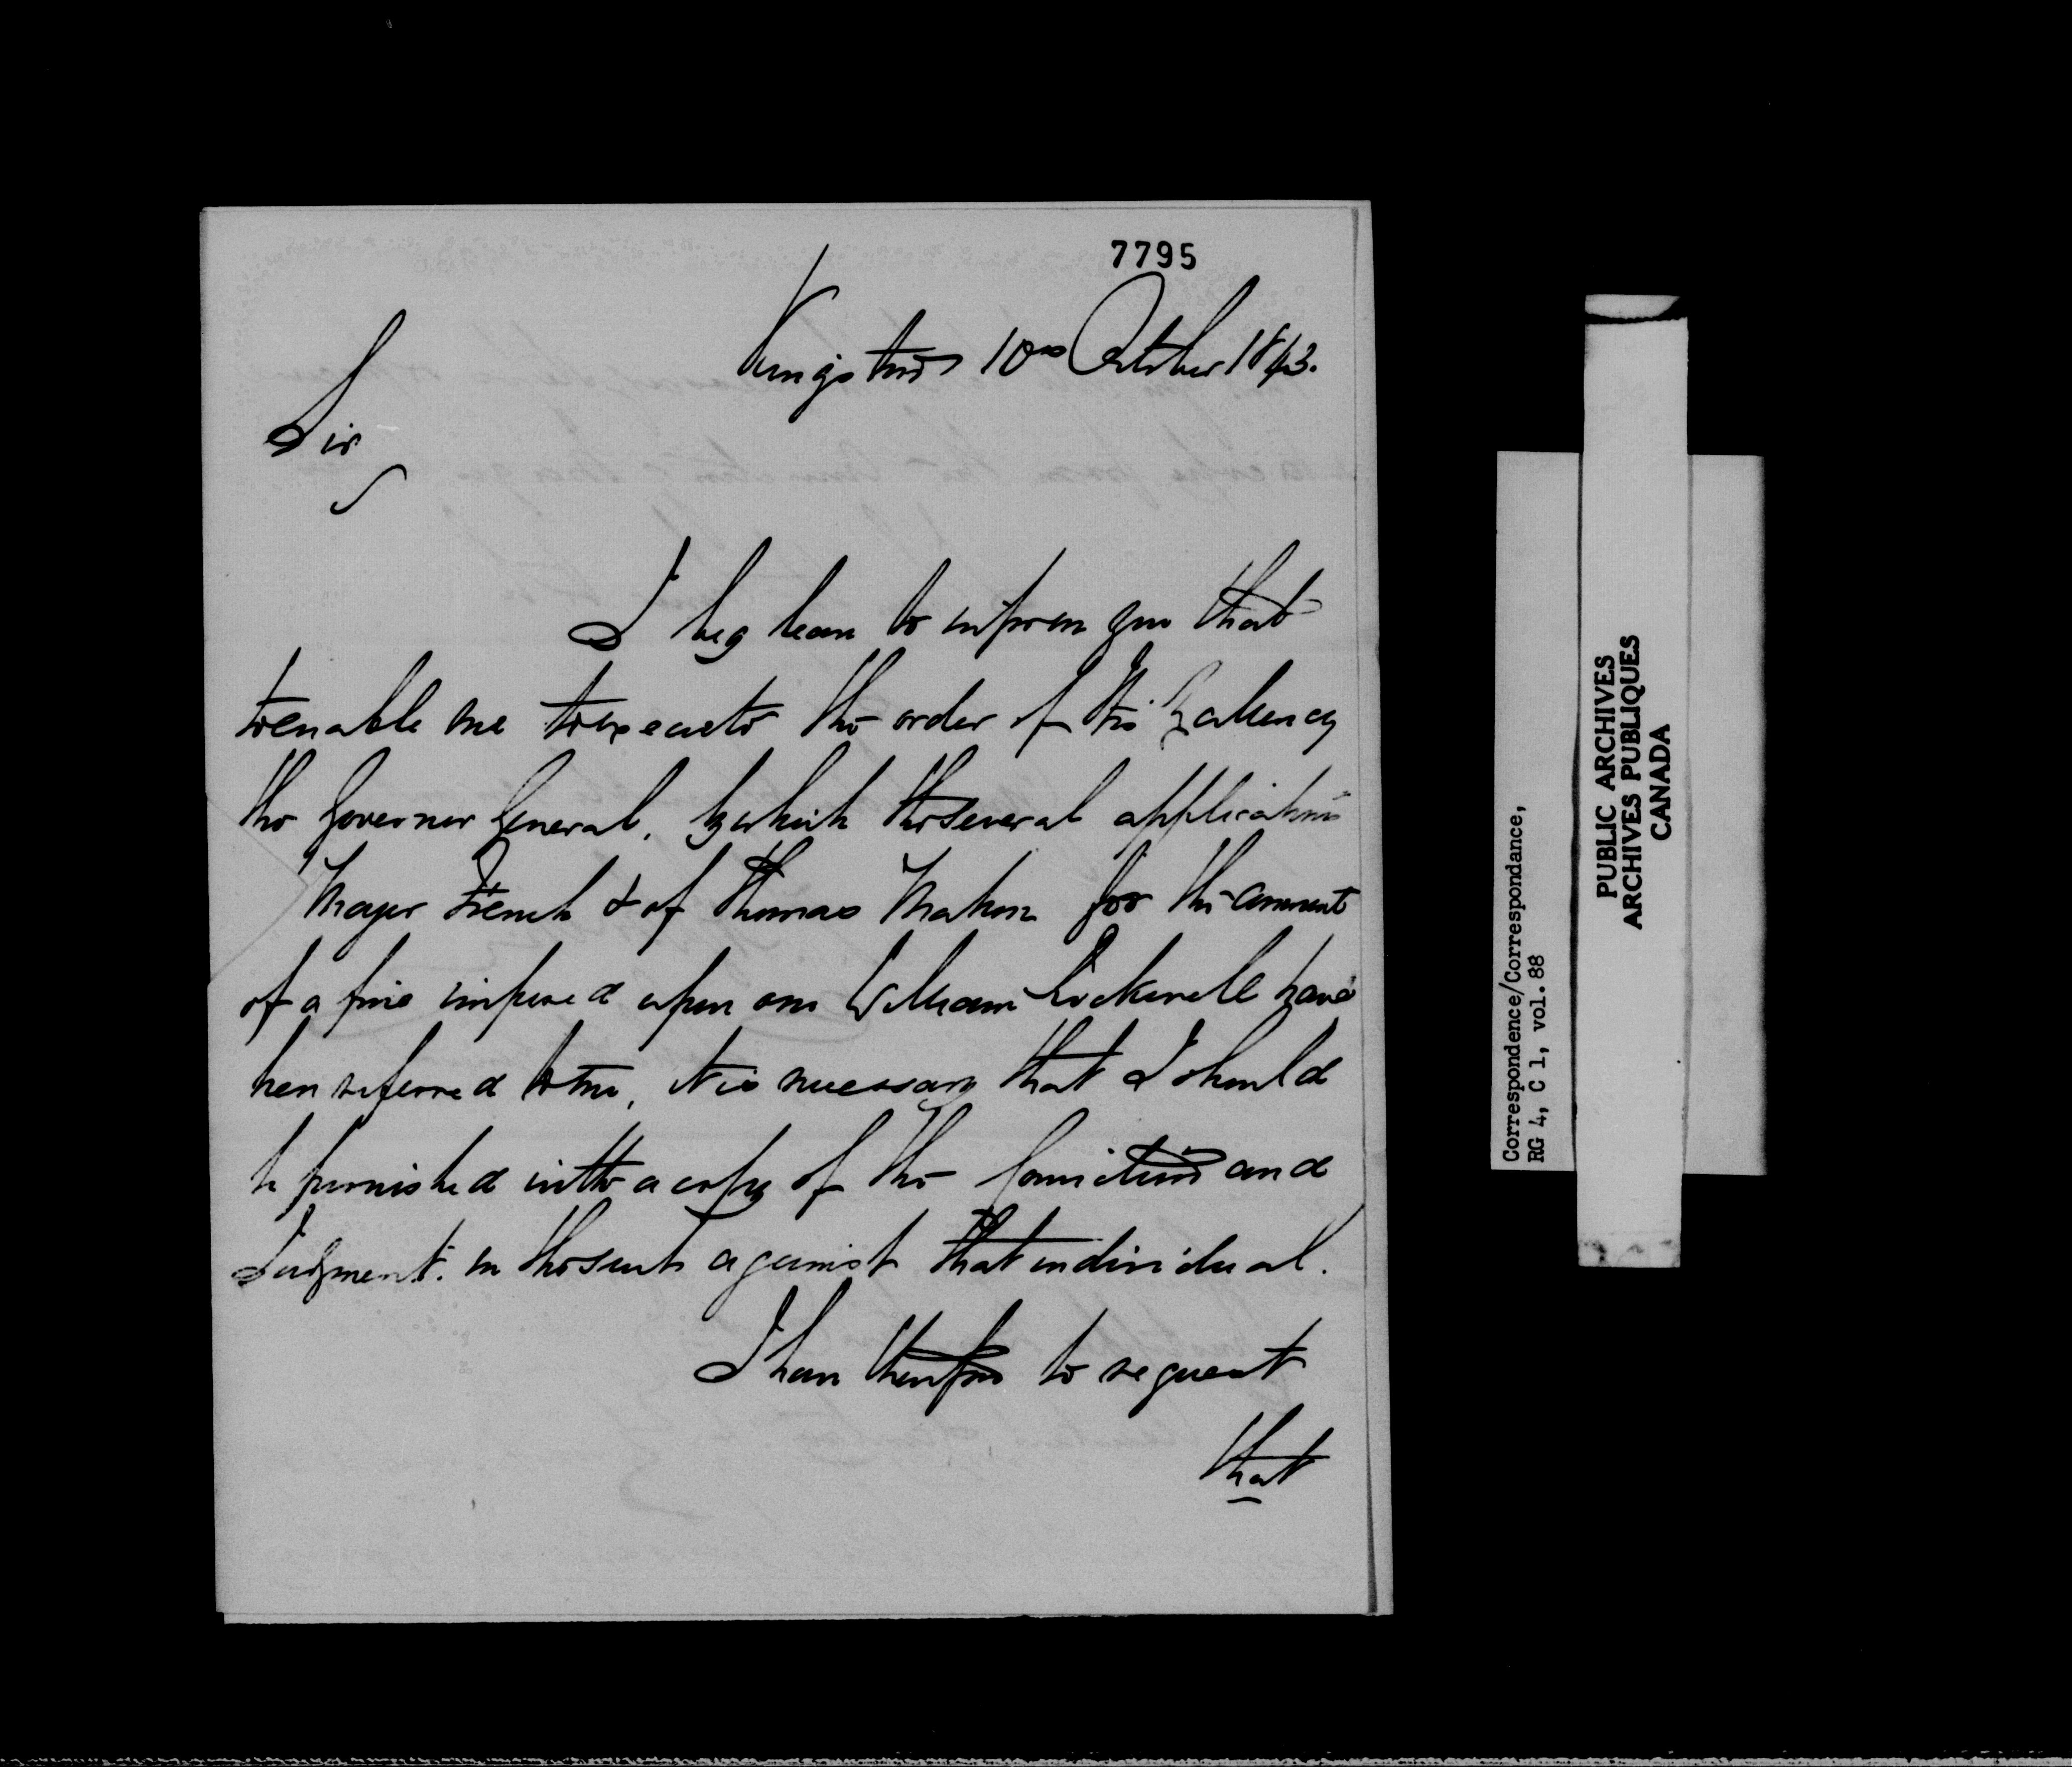 7795
Kingston 10th October 1843.
Sir
I beg leave to inform you that
to enable me to execute the order of His Excellency
the Governor General, by which the several applications
Major French & of Thomas Mahon for the amount
of a fine imposed upon one William Lockerell have
been referred to me, it is necessary that I should
be furnished with a copy of the Conviction and
Judgment in the suit against that individual.
I have therefore to request
that
Correspondence/Correspondance,
RG 4, C 1, vol. 88
PUBLIC ARCHIVES
ARCHIVES PUBLIQUES
CANADA